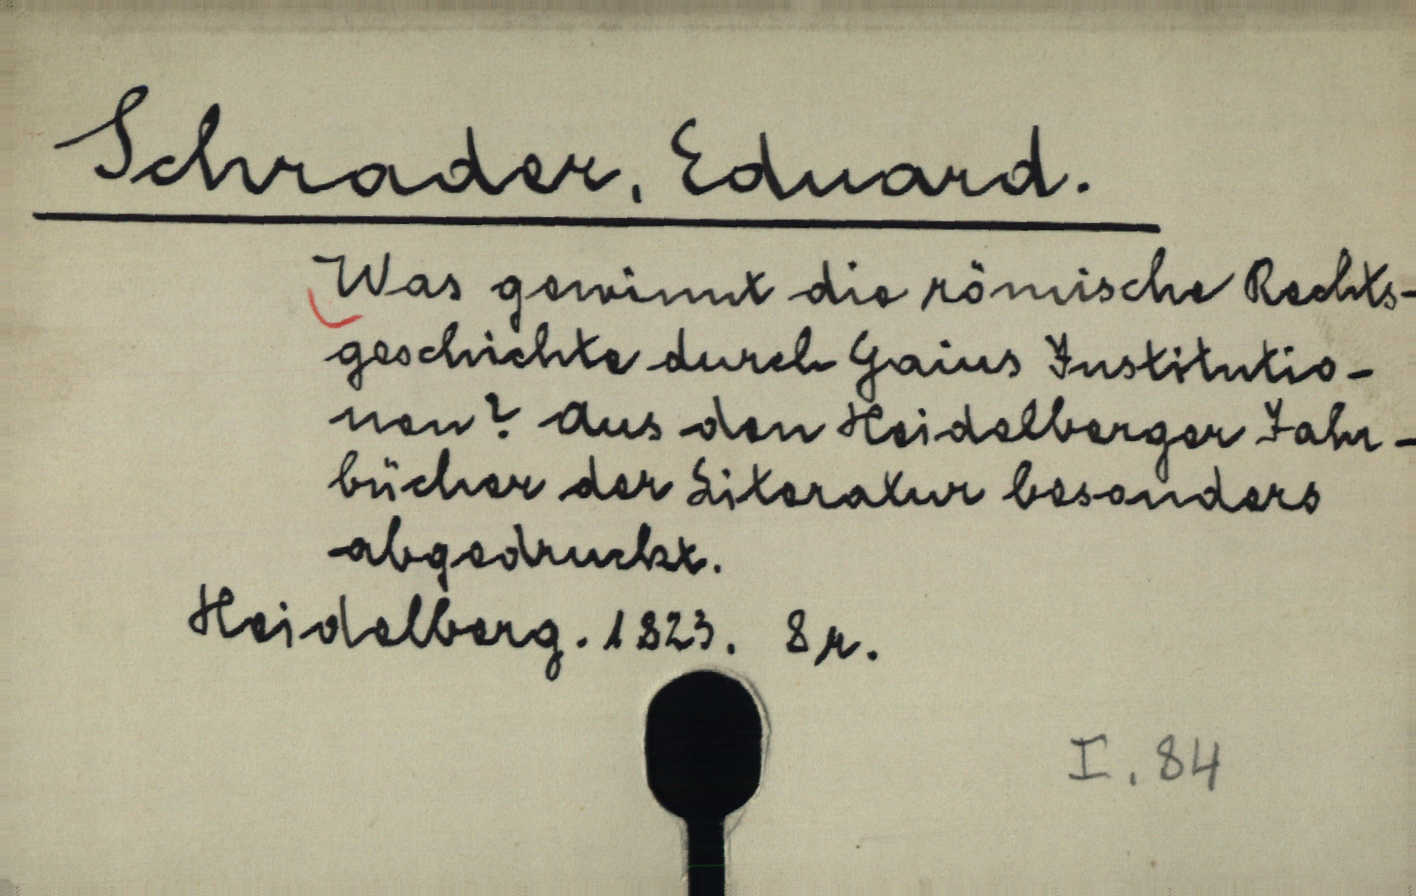 Schrader, Eduard.
Was gewinnt die römische Rechts-
geschichte durch Gaius Institutio-
nen? Aus den Heidelberger Jahr-
bücher der Literatur besonders
abgedruckt.
Heidelberg. 1823. 8r.
I. 84